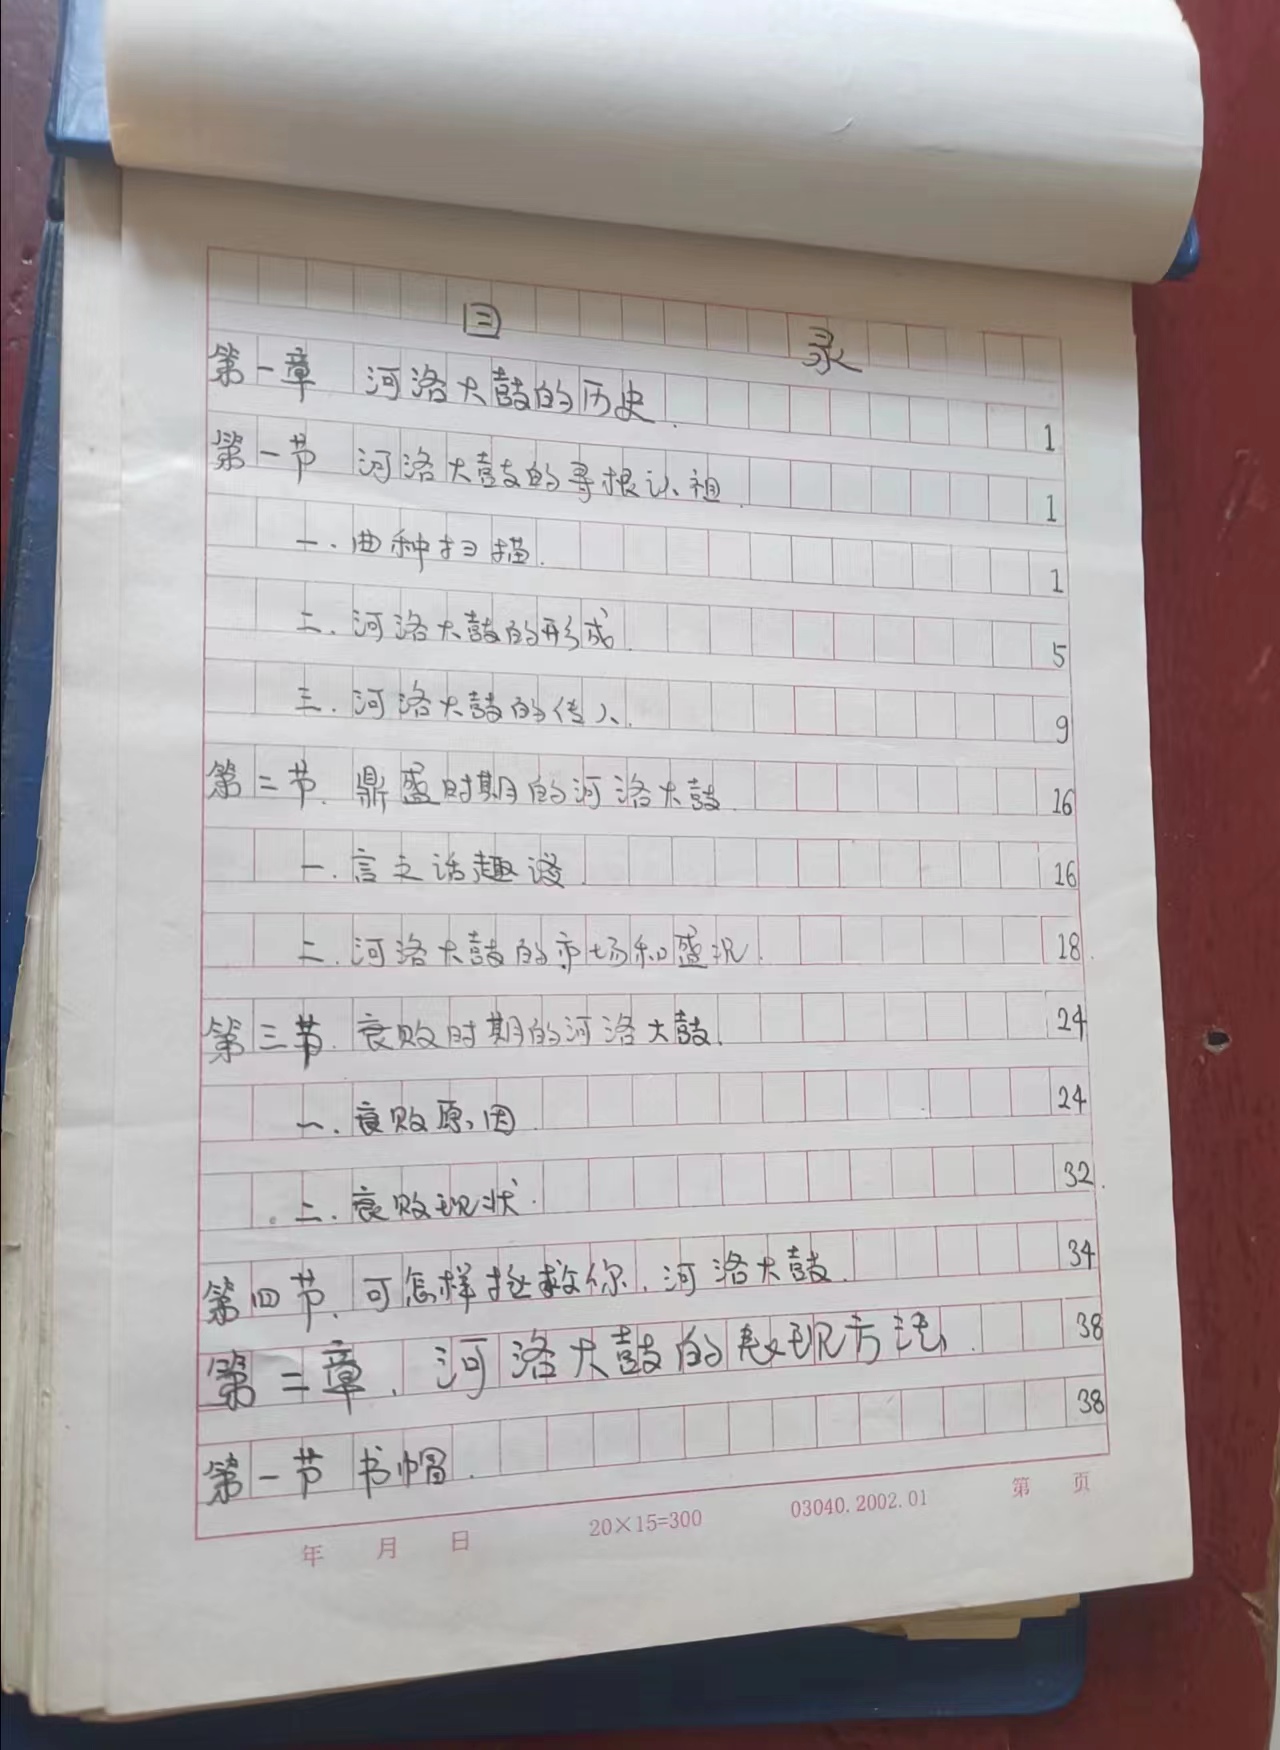 目 录
第一章 河洛大鼓的历史. 1
第一节 河洛大鼓的寻根认祖. 1
一.曲种扫描. 1
二.河洛大鼓的形成. 5
三.河洛大鼓的传人. 9
第二节.鼎盛时期的河洛大鼓. 16
一.言之话趣谈. 16
二.河洛大鼓的市场和盛况. 18.
第三节.衰败时期的河洛大鼓. 24
一.衰败原因. 24
二.衰败现状. 32.
第四节.可怎样抢救你.河洛大鼓. 34
第二章.河洛大鼓的表现方法. 38
第一节 书帽. 38
年 月 日 20×15=300 03040.2002.01 第 页